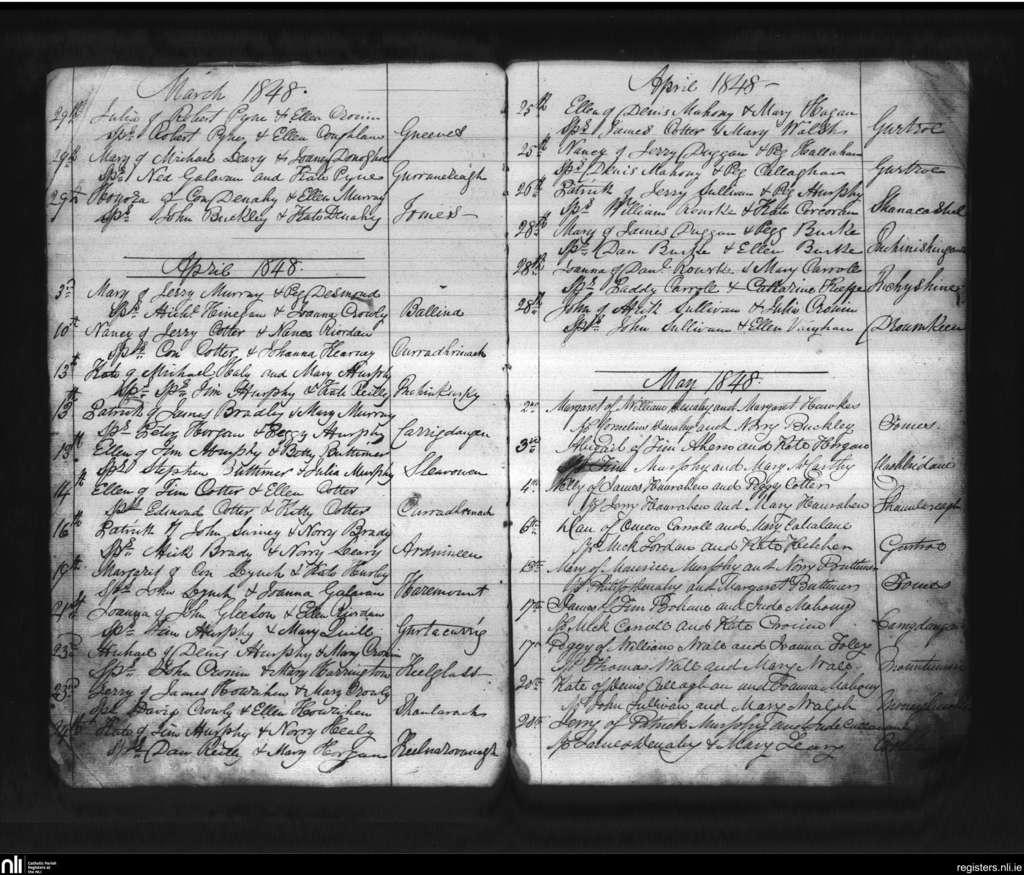 March 1848.
29th Julia of Robert Pyne & Ellen Cronin
Sps. Robert Pyne & Ellen Coughlan Greeves
29th Mary of Michael Deasy & Joaney Donoghue
Sps. Ned Galavan and Kate Pyne
29th Honora of Con Denahy & Ellen Murray
Sps. John Buckley & Kate Denahy Tomes
April 1848.
3rd Mary of Jerry Murray & Peg Desmond
Sps. Finegan & Joanna Crowly Ballina
10th Nancy of Jerry Cotter & Nance Riordan
Sps. Con Cotter & Johanna Kearney
13th Kate of Michael Healy and Mary Murphy
Sps. Jim Murphy & Kate Reilly
13th Patrick of James Bradly & Mary Murray
Sps. Peter Horgan & Peggy Murphy Carrigdangan
13th Ellen of Tim Murphy & Betty Buttimer
Sps. Stephen Buttimer & Julia Murphy Slearowen
14th Ellen of Tim Cotter & Ellen Cotter
Sps. Edmond Cotter & Kitty Cotter
16th Patrick of John & Norry Brady
Sps. Mick Brady & Norry Leary
19th Margaret of Con Lynch & Kate Hurley
Sps. John Lynch & Joanna Galavan Haremount
21st Joanna of John Gleeson & Ellen Riordan
Sps. Murphy & Mary Quill
23rd Michael of Denis Murphy & Mary Cronin
Sps. John Cronin & Mary Harrington Keelglass
23rd Jerry of James Hourihan & Mary Crowly
Sps. David Crowly & Ellen Hourihan
Kate of Tim Murphy & Norry Healy
Sps. Dan Reilly & Mary Horgan
April 1848
25th Ellen of Denis Mahony & Mary Hugan
Sps. James Cotter & Mary Walsh Gurtroe
25th Nancy of Jerry Duggan & Peg Hallahan
Sps. Denis Mahony & Peg Callaghan Gurtroe
26th Patrick of Jerry Sullivan & Peg Murphy
Sps. William Rourke & Kate Corcoran Shanacashel
28th Mary of James Duggan & Pegg Burke
Sps. Dan Burke & Ellen Burke
28th Joanna of Danl. Rourke & Mary Carroll
Sps. Biddy Carroll & Catharine
28th John of Mick Sullivan & Julia Cronin
Sps. John Sullivan & Ellen Vaughan Droumkeen
May 1848.
2nd Margaret of William Denahy and Margaret Hawkes
Sps. Cornelius Denahy and Nory Buckley Tomes.
3rd Abigail of Tim Ahern and Kate Horgan
Sps. Tim Murphy and Mary McCarthy
4th Nelly of James Hanrahan and Peggy Cotter
Sps. Jerry Hanrahan and Mary Hanrahan
6th Dan of Owen Carroll and Mary
Sps. Mick Jordan and Kate Gurtroe
Mary of Maurice Murphy and Nory Buttimer
Sps. Philip Denahy and Margaret Buttimer Tomes
17th James of Tim and Jude Mahony
Sps. Mick Carroll and Kate Cronin Carrigdangan
17th Peggy of William Wall and Joanna Foley
Sps. Thomas Wall and Mary Wall.
20th Kate of Denis Callaghan and Joanna Mahony
Sps. John Sullivan and Mary Walsh
20th Jerry of Patrick Murphy and Jude
Sps. James & Mary Leary
nli
Catholic Parish
Registers at
the NLI
registers.nli.ie